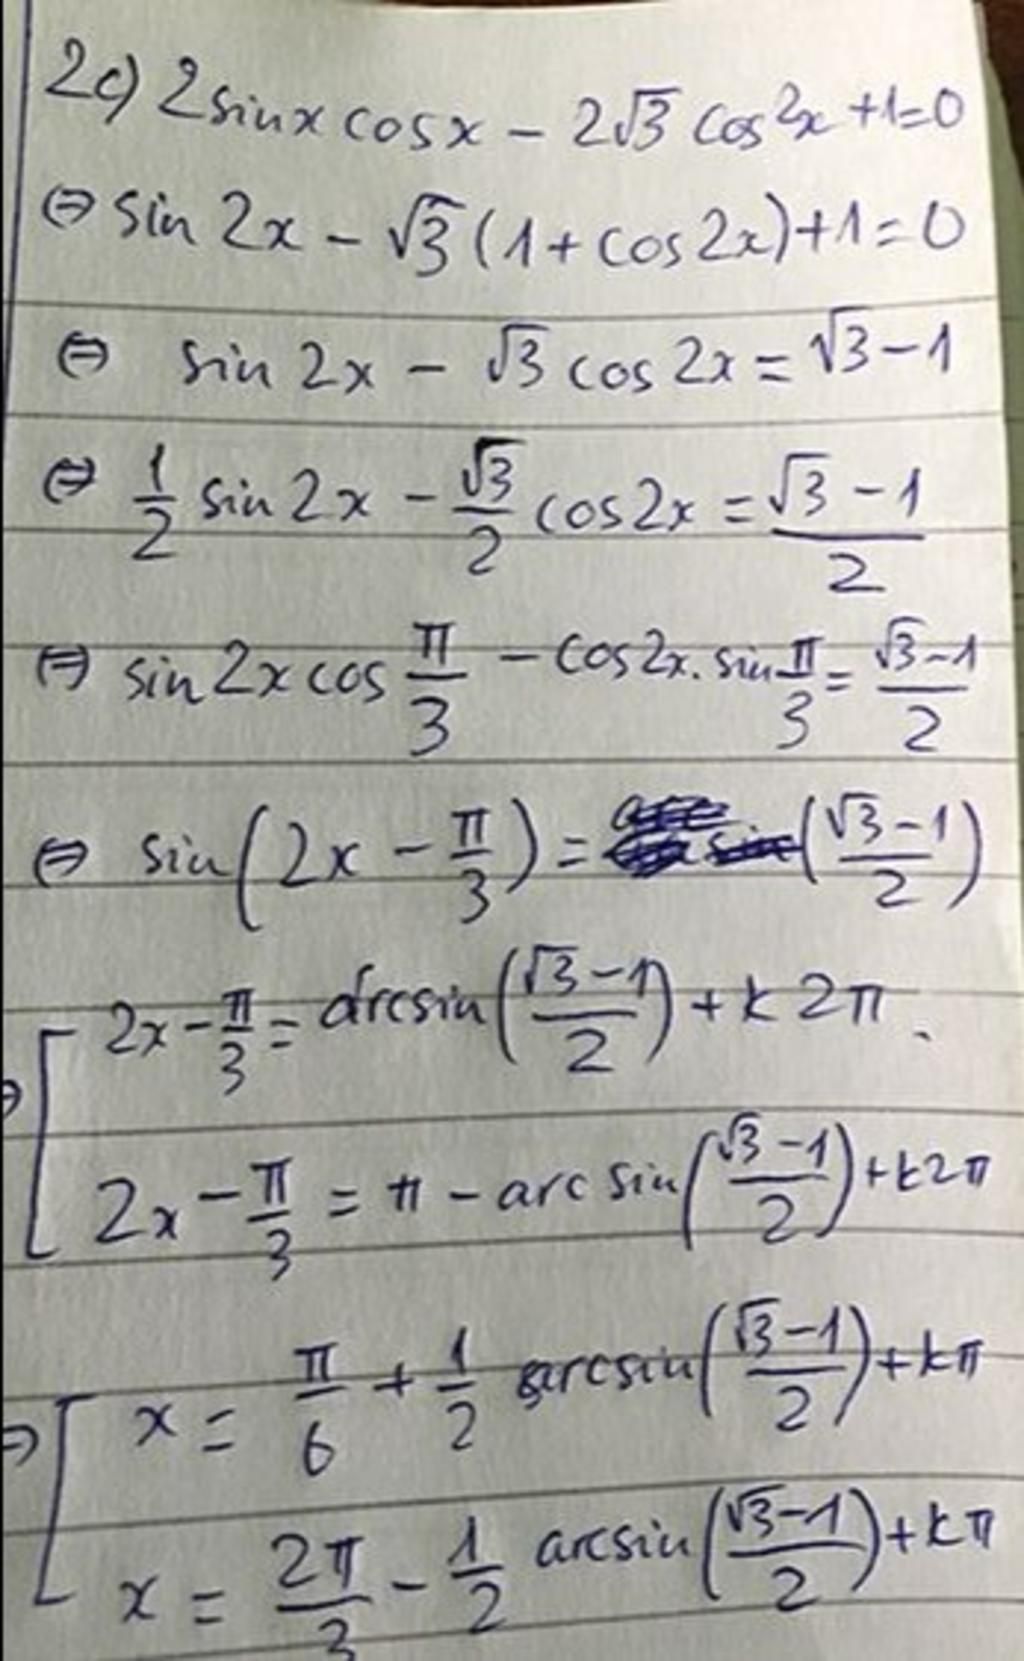 2c) 2sinx cosx - 2√3 cos²x +1=0
⇔ sin 2x - √3 (1 + cos 2x) + 1 = 0
⇔ sin 2x - √3 cos 2x = √3 - 1
⇔ 1/2 sin 2x - √3/2 cos2x = (√3 - 1)/2
⇔ sin 2x cos π/3 - cos2x. sin π/3 = (√3-1)/2
⇔ sin(2x - π/3) = ((√3-1)/2)
⇔ [ 2x - π/3 = arcsin((√3-1)/2) + k2π.
2x - π/3 = π - arcsin((√3-1)/2) + k2π
⇔ [ x = π/6 + 1/2 arcsin((√3-1)/2) + kπ
x = 2π/3 - 1/2 arcsin((√3-1)/2) + kπ